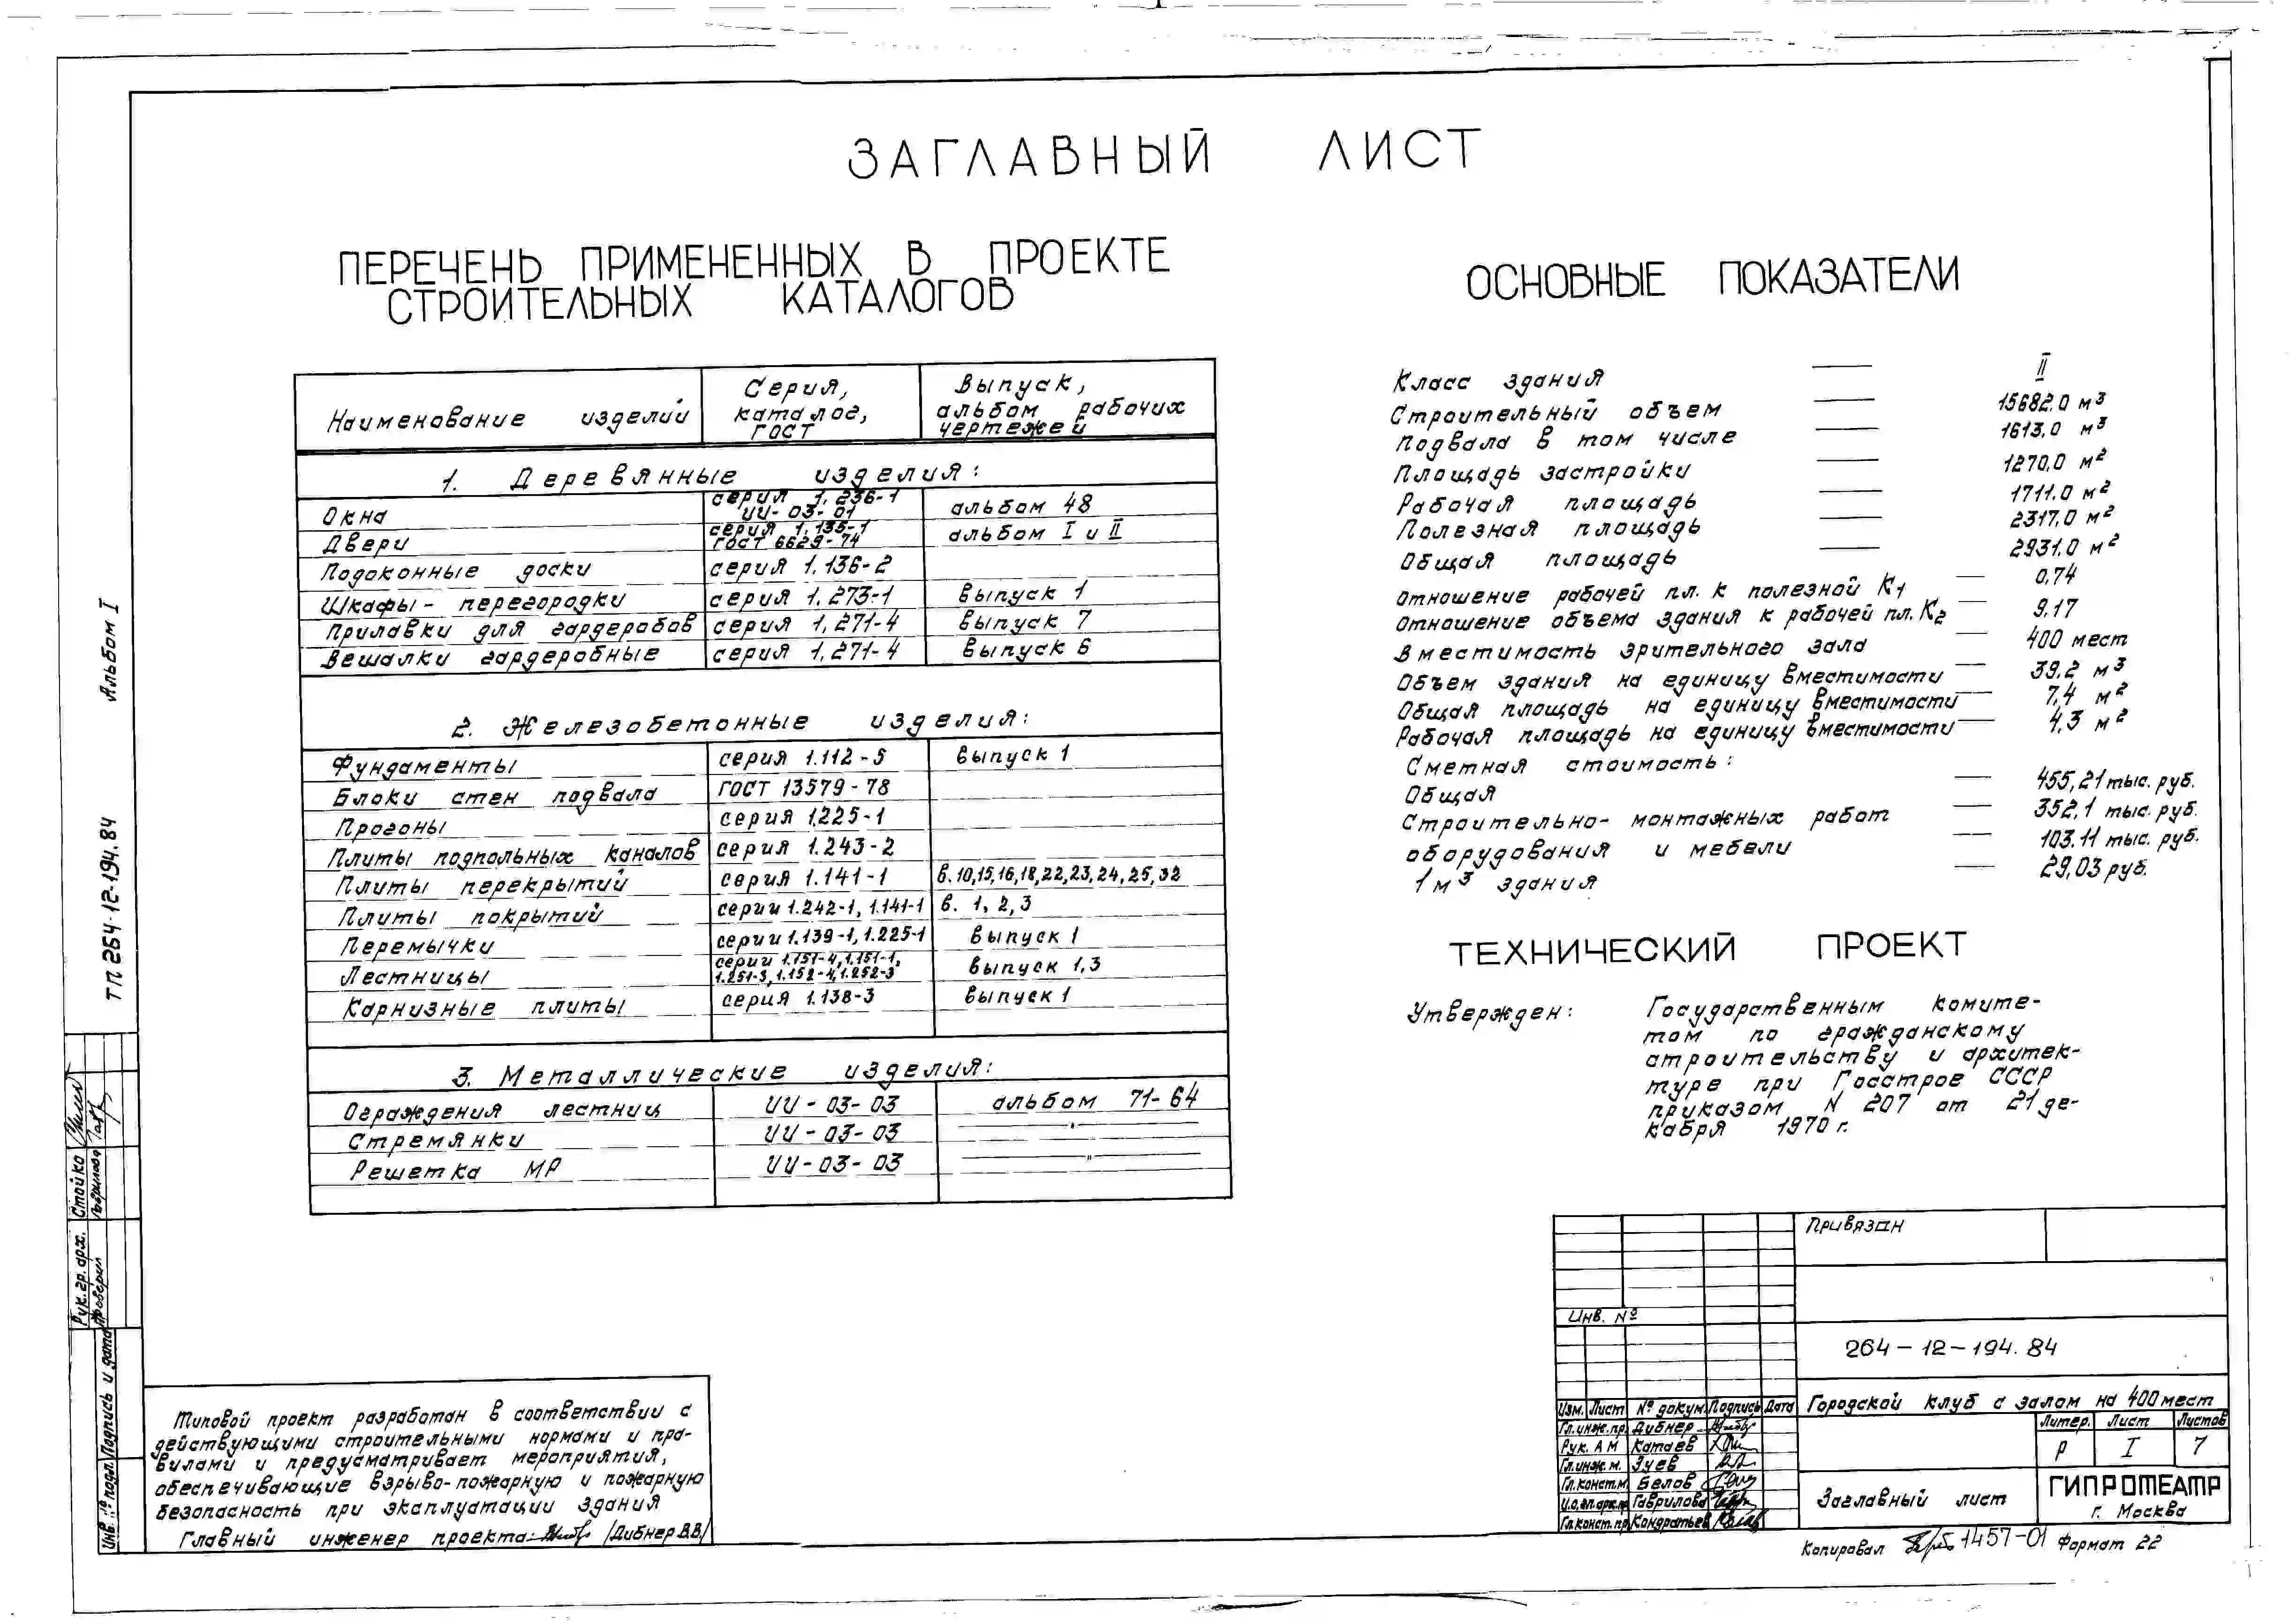 ЗАГЛАВНЫЙ ЛИСТ
ПЕРЕЧЕНЬ ПРИМЕНЕННЫХ В ПРОЕКТЕ
СТРОИТЕЛЬНЫХ КАТАЛОГОВ
Наименование изделий
Серия,
каталог,
ГОСТ
Выпуск,
альбом рабочих
чертежей
1. Деревянные изделия:
Окна серия 1.236-1 ИИ-03-01 альбом 48
Двери серия 1.135-1 ГОСТ 6629-74 альбом I и II
Подоконные доски серия 1.136-2
Шкафы- перегородки серия 1.273-1 выпуск 1
Прилавки для гардеробов серия 1.271-4 выпуск 7
Вешалки гардеробные серия 1.271-4 выпуск 6
2. Железобетонные изделия:
Фундаменты серия 1.112-5 выпуск 1
Блоки стен подвала ГОСТ 13579-78
Прогоны серия 1.225-1
Плиты подпольных каналов серия 1.243-2
Плиты перекрытий серия 1.141-1 в.10,15,16,18,22,23,24,25,32
Плиты покрытий серии 1.242-1, 1.141-1 в. 1, 2, 3
Перемычки серии 1.139-1, 1.225-1 выпуск 1
Лестницы серии 1.151-4, 1.151-1, 1.251-3, 1.152-4, 1.252-3 выпуск 1,3
Карнизные плиты серия 1.138-3 выпуск 1
3. Металлические изделия:
Ограждения лестниц ИИ-03-03 альбом 71-64
Стремянки ИИ-03-03 "
Решетка МР ИИ-03-03 "
ОСНОВНЫЕ ПОКАЗАТЕЛИ
Класс здания — II
Строительный объем — 15682.0 м³
Подвала в том числе — 1613,0 м³
Площадь застройки — 1270.0 м²
Рабочая площадь — 1711.0 м²
Полезная площадь — 2317,0 м²
Общая площадь — 2931.0 м²
Отношение рабочей пл. к полезной К1 — 0,74
Отношение объема здания к рабочей пл. К2 — 9.17
Вместимость зрительного зала — 400 мест
Объем здания на единицу вместимости — 39.2 м³
Общая площадь на единицу вместимости — 7,4 м²
Рабочая площадь на единицу вместимости — 4,3 м²
Сметная стоимость:
Общая — 455,21 тыс. руб.
Строительно- монтажных работ — 352,1 тыс. руб.
оборудования и мебели — 103.11 тыс. руб.
1 м³ здания — 29,03 руб.
ТЕХНИЧЕСКИЙ ПРОЕКТ
Утвержден: Государственным комите-
том по гражданскому
строительству и архитек-
туре при Госстрое СССР
приказом N 207 от 21 де-
кабря 1970 г.
Альбом I
ТП 264-12-194.84
Рук. гр. арх. Стойко
Проверил Гаврилова
Подпись и дата
Инв. № подл.
Типовой проект разработан в соответствии с
действующими строительными нормами и пра-
вилами и предусматривает мероприятия,
обеспечивающие взрыво-пожарную и пожарную
безопасность при эксплуатации здания
Главный инженер проекта: /Дибнер В.В./
Привязан
Инв. №
264-12-194.84
Изм. Лист № докум. Подпись Дата
Городской клуб с залом на 400 мест
Гл.инж.пр. Дибнер
Рук. АМ Катаев
Гл.инж.м. Зуев
Гл.конст.м. Белов
И.о.гл.арх.пр. Гаврилова
Гл.конст.пр. Кондратьев
Литер. Лист Листов
Р I 7
Заглавный лист
ГИПРОТЕАТР
г. Москва
Копировал 1457-01 Формат 22